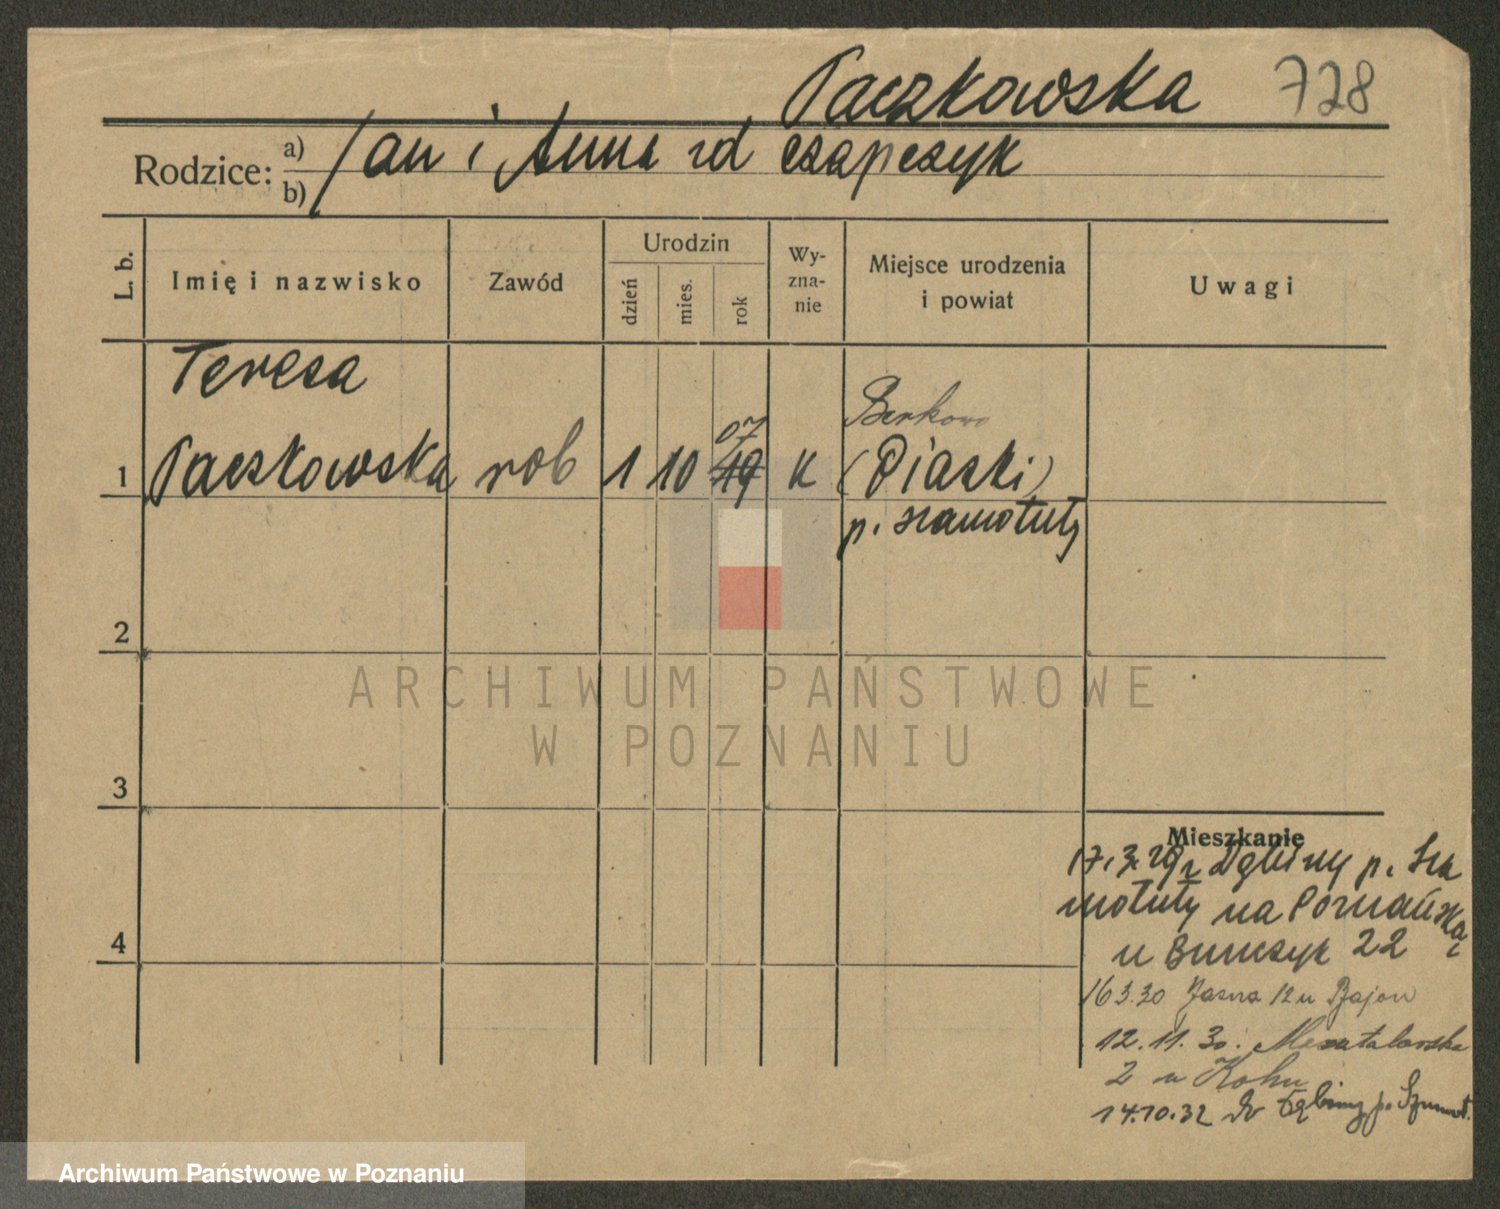 Paczkowska 728
Rodzice: a) b) Jan i Anna rd Czapczyk
L. b.
Imię i nazwisko
Zawód
Urodzin
dzień
mies.
rok
Wy-
zna-
nie
Miejsce urodzenia
i powiat
Uwagi
Teresa
Berkowo
07
1 Paczkowska rob 1 10 19 K (Piaski)
p. Szamotuły
2
3
4
Mieszkanie
17.3.29 z p. Sza
motuły na Poznańska
u 22
16 3.30 Jasna 12 u Bajon
12.11.30. Masztalarska
2 u Kohn
14.10.32 do p. Szamot.
ARCHIWUM PAŃSTWOWE
W POZNANIU
Archiwum Państwowe w Poznaniu